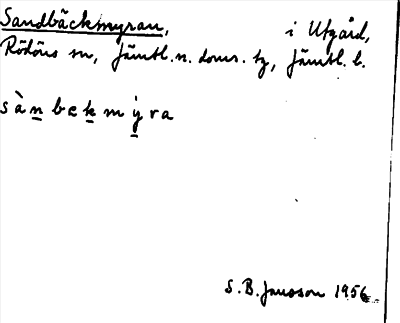 Sandbäckmyran, i Utgård,
Rödöns sn, Jämtl. n. doms. tg, Jämtl. l.
sàn̲bek̲mý̲ra
S. B. Jansson 1956